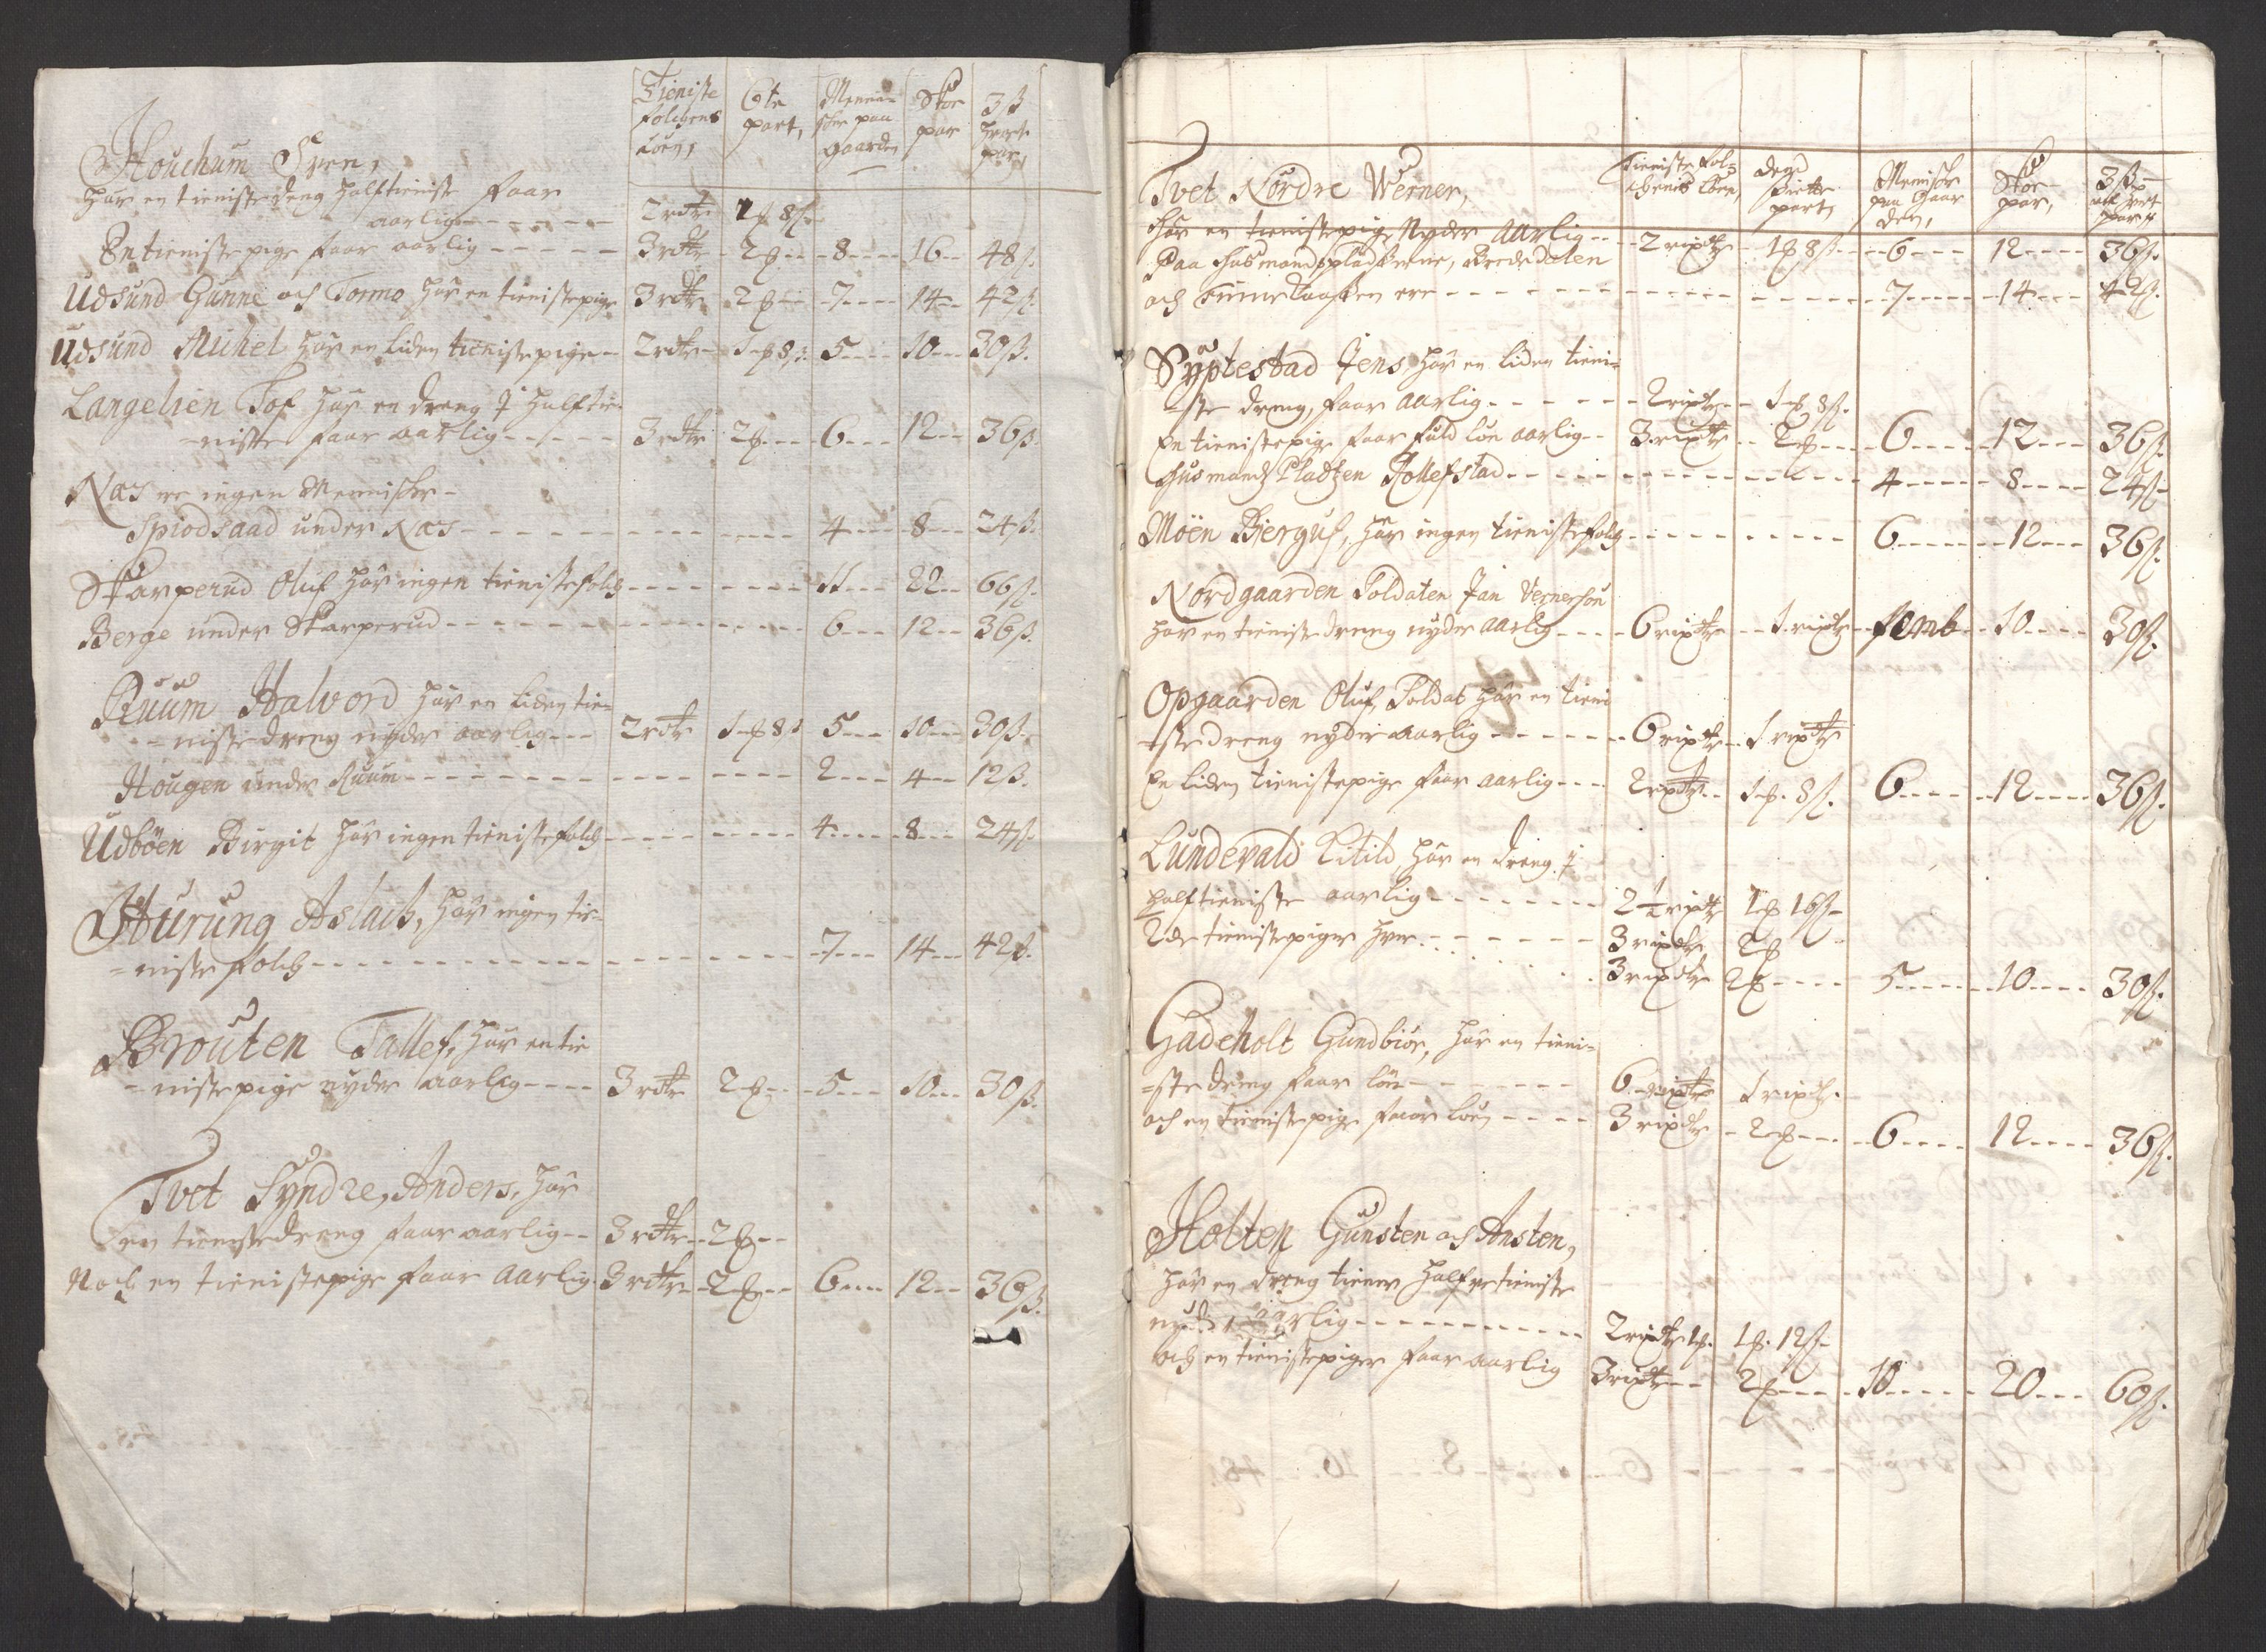 Tieniste folchens Løen, | 6te part, | Mennischer paa gaarden | Skoe par | 3 ß hvert par,
Houchum Sven,
har en tienistedreng half tieniste faar
aarlig ------ 2 rdr 1 ȹ 8 ß
En tienistepige faar aarlig ----- 3 rdr - 2 ȹ -- 8 ---- 16 -- 48 ß.
Udsund Gunne och Tormo har en tienistepige 3 rdr 2 ȹ -- 7 ---- 14 -- 42 ß.
Udsund Michel har en liden tienistepige - 2 rdr - 1 ȹ 8 ß. 5 ---- 10 --- 30 ß.
Langelien Tof har en dreng J half tie-
=niste faar aarlig ------ 3 rdr 2 ȹ ---- 6 --- 12 -- 36 ß.
Næs er ingen Mennischer -
Spiodsaad under Næs ------------ 4 ---- 8 --- 24 ß.
Skarperud Oluf har ingen tienistefolch -------- 11 --- 22 -- 66 ß.
Berge under Skarperud ------------ 6 --- 12 -- 36 ß.
Ruum Halvord har en liden tie-
=nistedreng nyder aarlig --- 2 rdr 1 ȹ 8 ß 5 --- 10 --- 30 ß.
Hougen under Ruum ------------ 2 --- 4 -- 12 ß.
Udbøen Birgit har ingen tienistefolch --------- 4 ----- 8 --- 24 ß.
Hurung Aslach, har ingen tie-
=nistefolch ------------------ 7 --- 14 --- 42 ß.
Brouten Tallef, har en tie
=nistepige nyder aarlig ---- 3 rdr 2 ȹ -- 5 --- 10 --- 30 ß.
Tvet Syndre, Anders, har
en tienistedreng faar aarlig -- 3 rdr -- 2 ȹ --
Noch en tienistepige faar aarlig 3 rdr - 2 ȹ -- 6 --- 12 -- 36 ß.
Tieniste folchens Løen, | Dend siette part, | Mennischer paa Gaarden, | Skoe par, | 3 ß
Tvet Nordre Werner,
har en tienistepige Nyder aarlig -- 2 ripdr 1 ȹ 8 ß -- 6 --- 12 ---- 36 ß.
Paa Husmandspladserne, Brededalen
och ere ------------------ 7 ---- 14 --- 42 ß.
Syptestad Jens har en liden tieni=
=ste dreng, faar aarlig ------ 2 ripdr -- 1 ȹ 8 ß.
En tienistepige faar fuld løn aarlig -- 3 ripdr -- 2 ȹ --- 6 ---- 12 --- 36 ß.
Husmands Pladsen Rollefstad ------------- 4 ----- 8 ---- 24 ß.
Möen Bierguf, har ingen tienistefolch ---------- 6 ------ 12 --- 36 ß.
Nordgaarden Soldaten Jan Vernerson
har en tienistedreng nyder aarlig ---- 6 ripdr -- 1 ripdr -- femb -- 10 ---- 30 ß.
Opgaarden Oluf, Soldat har en tieni
=stedreng nyder aarlig ------ 6 ripdr - 1 ripdr
En liden tienistepige faar aarlig --- 2 ripdr -- 1 ȹ. 8 ß. 6 ----- 12 ---- 36 ß.
Lundevald Kitild, har en dreng J
half tieniste aarlig ------- 2½ ripdr 1 ȹ 16 ß -
2de tienistepiger hver ------ 3 ripdr 2 ȹ
3 ripdr 2 ȹ ---- 5 ----- 10 ---- 30 ß.
Gadeholt Gundbiør, har en tieni=
=ste dreng faar løn ------- 6 ripdr 1 ripdr.
och en tienistepige faar løn ---- 3 ripdr - 2 ȹ --- 6 ---- 12 ---- 36 ß.
Holten Gunsten och Ansten,
har en dreng tiener half
nyder aarlig ----------- 2 ripdr 1 ȹ. 1 ȹ. 12 ß -
och en tienistepiger faar aarlig 3 ripdr -- 2 ȹ ---- 10 ----- 20 --- 60 ß.